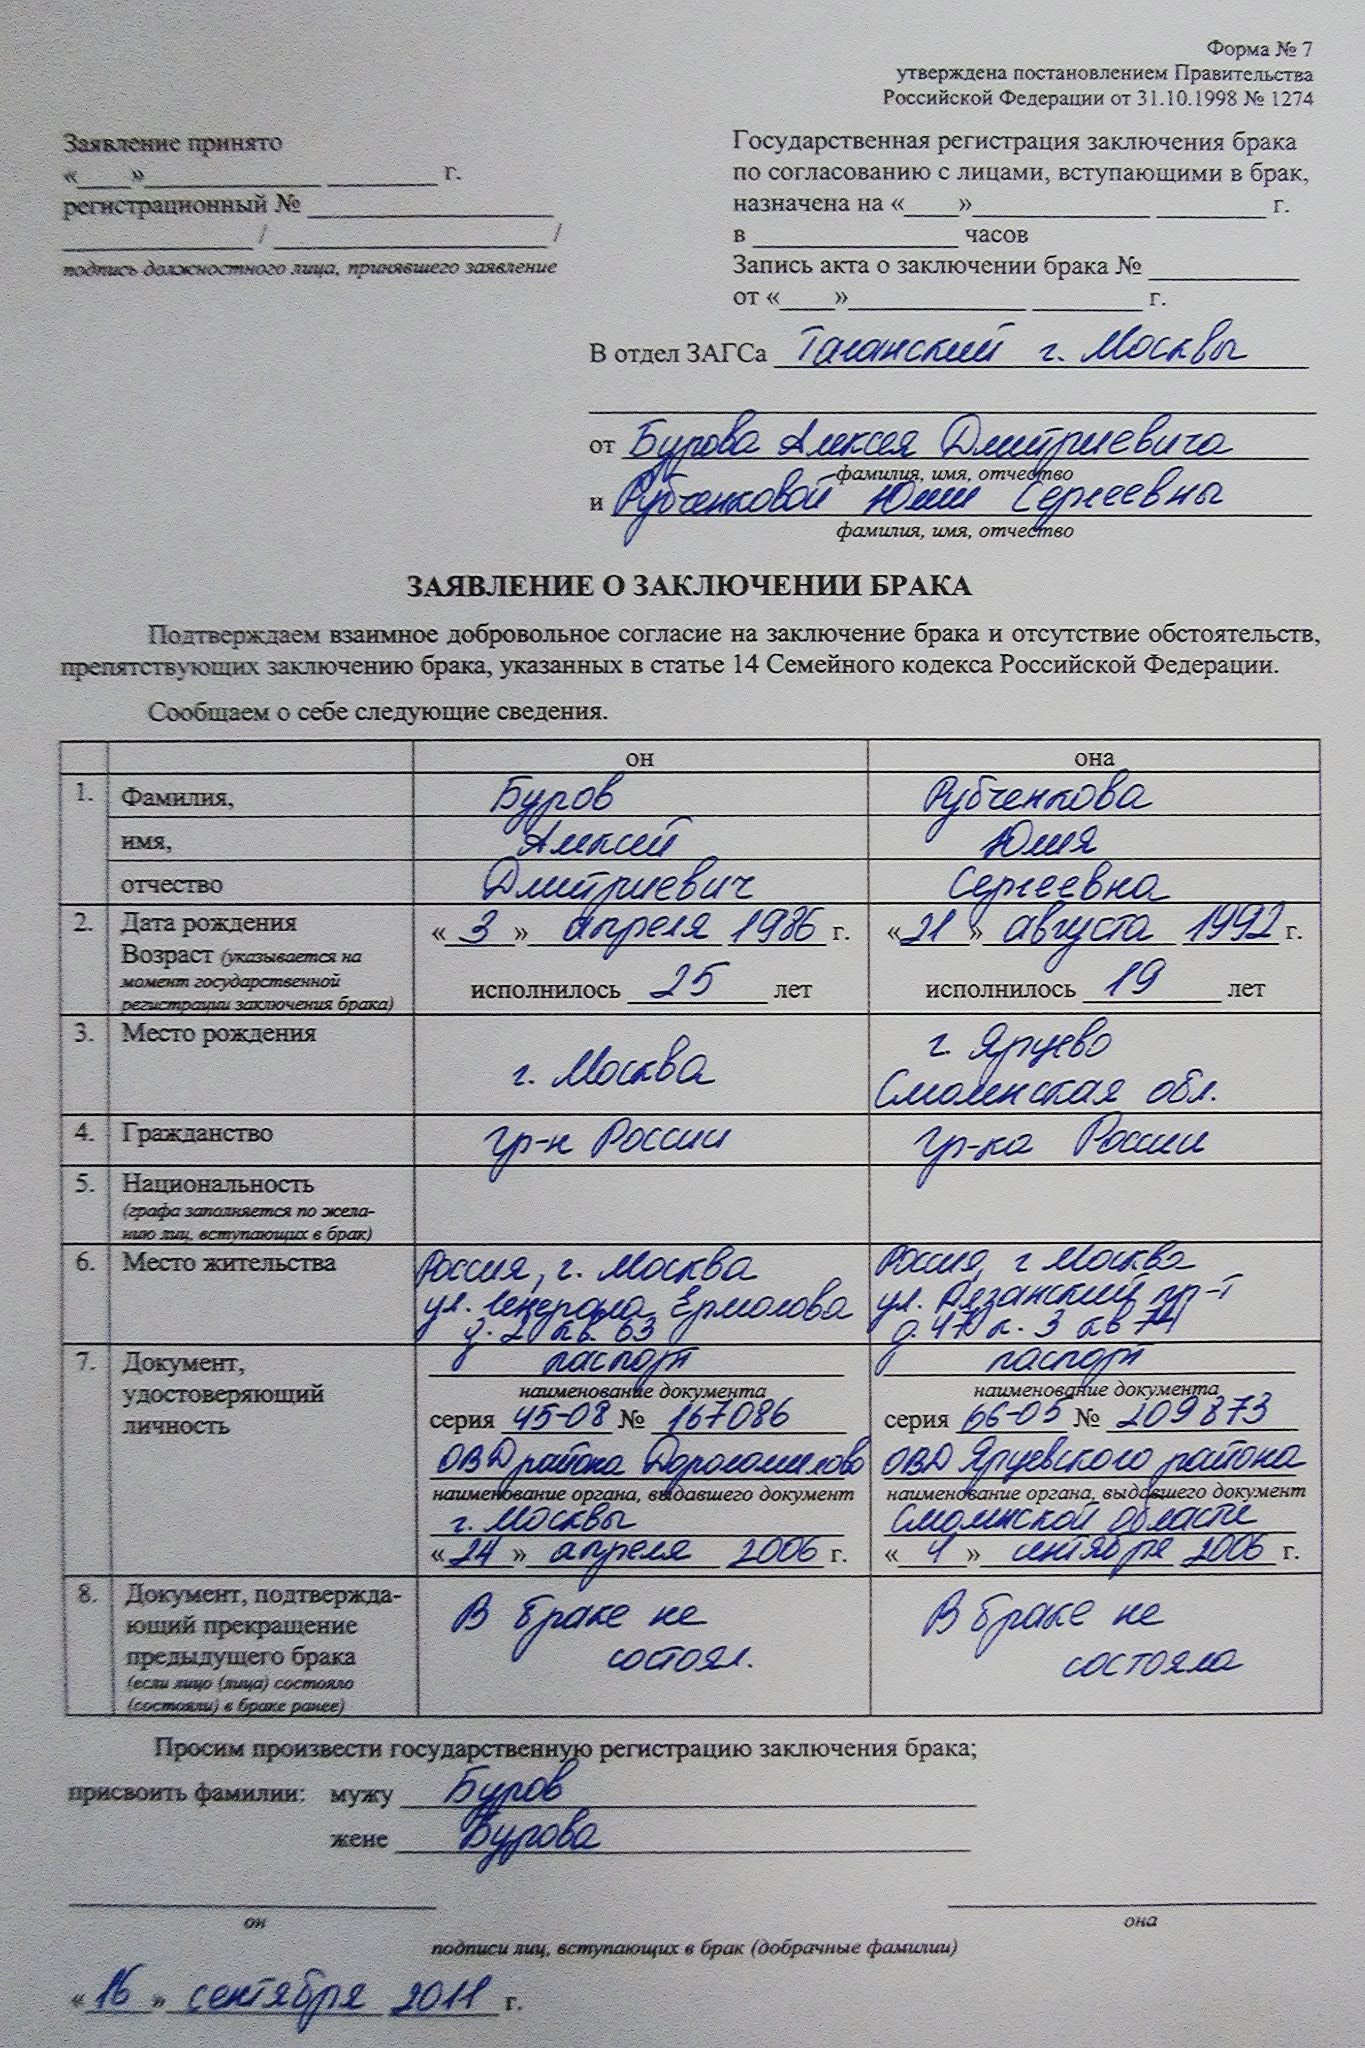 Форма № 7
утверждена постановлением Правительства
Российской Федерации от 31.10.1998 № 1274
Заявление принято
«____»______________ ________ г.
регистрационный № __________________
______________ / ____________________ /
подпись должностного лица, принявшего заявление
Государственная регистрация заключения брака
по согласованию с лицами, вступающими в брак,
назначена на «____»_____________ ________ г.
в _______________ часов
Запись акта о заключении брака № ___________
от «____»_____________ ________ г.
В отдел ЗАГСа Таганский г. Москвы
от Бурова Алексея Дмитриевича
фамилия, имя, отчество
и Рубченковой Юлии Сергеевны
фамилия, имя, отчество
ЗАЯВЛЕНИЕ О ЗАКЛЮЧЕНИИ БРАКА
Подтверждаем взаимное добровольное согласие на заключение брака и отсутствие обстоятельств,
препятствующих заключению брака, указанных в статье 14 Семейного кодекса Российской Федерации.
Сообщаем о себе следующие сведения.
он она
1. Фамилия, Буров Рубченкова
имя, Алексей Юлия
отчество Дмитриевич Сергеевна
2. Дата рождения «3» апреля 1986 г. «21» августа 1992 г.
Возраст (указывается на
момент государственной
регистрации заключения брака)
исполнилось 25 лет исполнилось 19 лет
3. Место рождения г. Москва г. Ярцево
Смоленская обл.
4. Гражданство гр-н России гр-ка России
5. Национальность
(графа заполняется по жела-
нию лиц, вступающих в брак)
6. Место жительства Россия, г. Москва Россия, г Москва
ул. Генерала Ермолова ул. Рязанский пр-т
д. 2 кв. 63 д. 47 к. 3 кв 74
7. Документ, паспорт паспорт
удостоверяющий наименование документа наименование документа
личность серия 45-08 № 167086 серия 66-05 № 209873
ОВД района Дорогомилово ОВД Ярцевского района
наименование органа, выдавшего документ наименование органа, выдавшего документ
г. Москвы Смоленской области
«24» апреля 2006 г. «4» сентября 2006 г.
8. Документ, подтвержда- В браке не В браке не
ющий прекращение состоял. состояла
предыдущего брака
(если лицо (лица) состояло
(состояли) в браке ранее)
Просим произвести государственную регистрацию заключения брака;
присвоить фамилии: мужу Буров
жене Бурова
он она
подписи лиц, вступающих в брак (добрачные фамилии)
«16» сентября 2011 г.